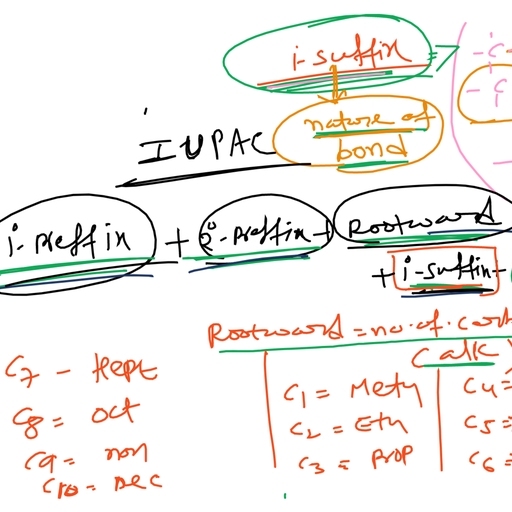 i-suffix
nature of
bond
IUPAC
i-preffix + 2°-preffix + Rootward
+ i-suffix -
Rootward = no. of. car
C alk
C7 - Hept
C8 = oct
C9 = non
C10 = Dec
C1 = Meth
C2 = Eth
C3 = Prop
C4 =
C5 =
C6 =
- C
- C